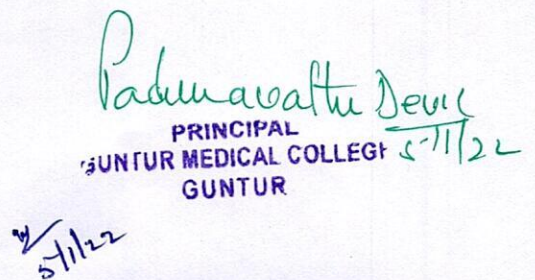 Padmavathi Devi
5/1/22
PRINCIPAL
GUNTUR MEDICAL COLLEGE
GUNTUR
5/1/22